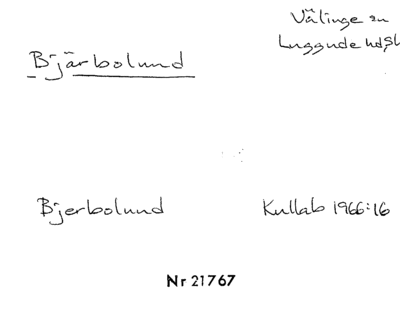 Välinge sn
Luggude hd, Sk
Bjärbolund
Bjerbolund Kullab 1966:16
Nr 21767